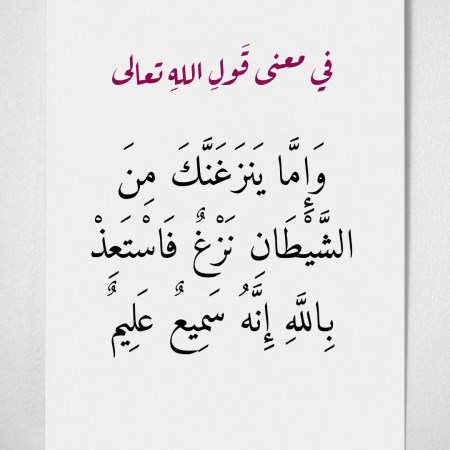 في معنى قَولِ اللهِ تعالى
وَإِمَّا يَنزَغَنَّكَ مِنَ
الشَّيْطَانِ نَزْغٌ فَاسْتَعِذْ
بِاللَّهِ إِنَّهُ سَمِيعٌ عَلِيمٌ